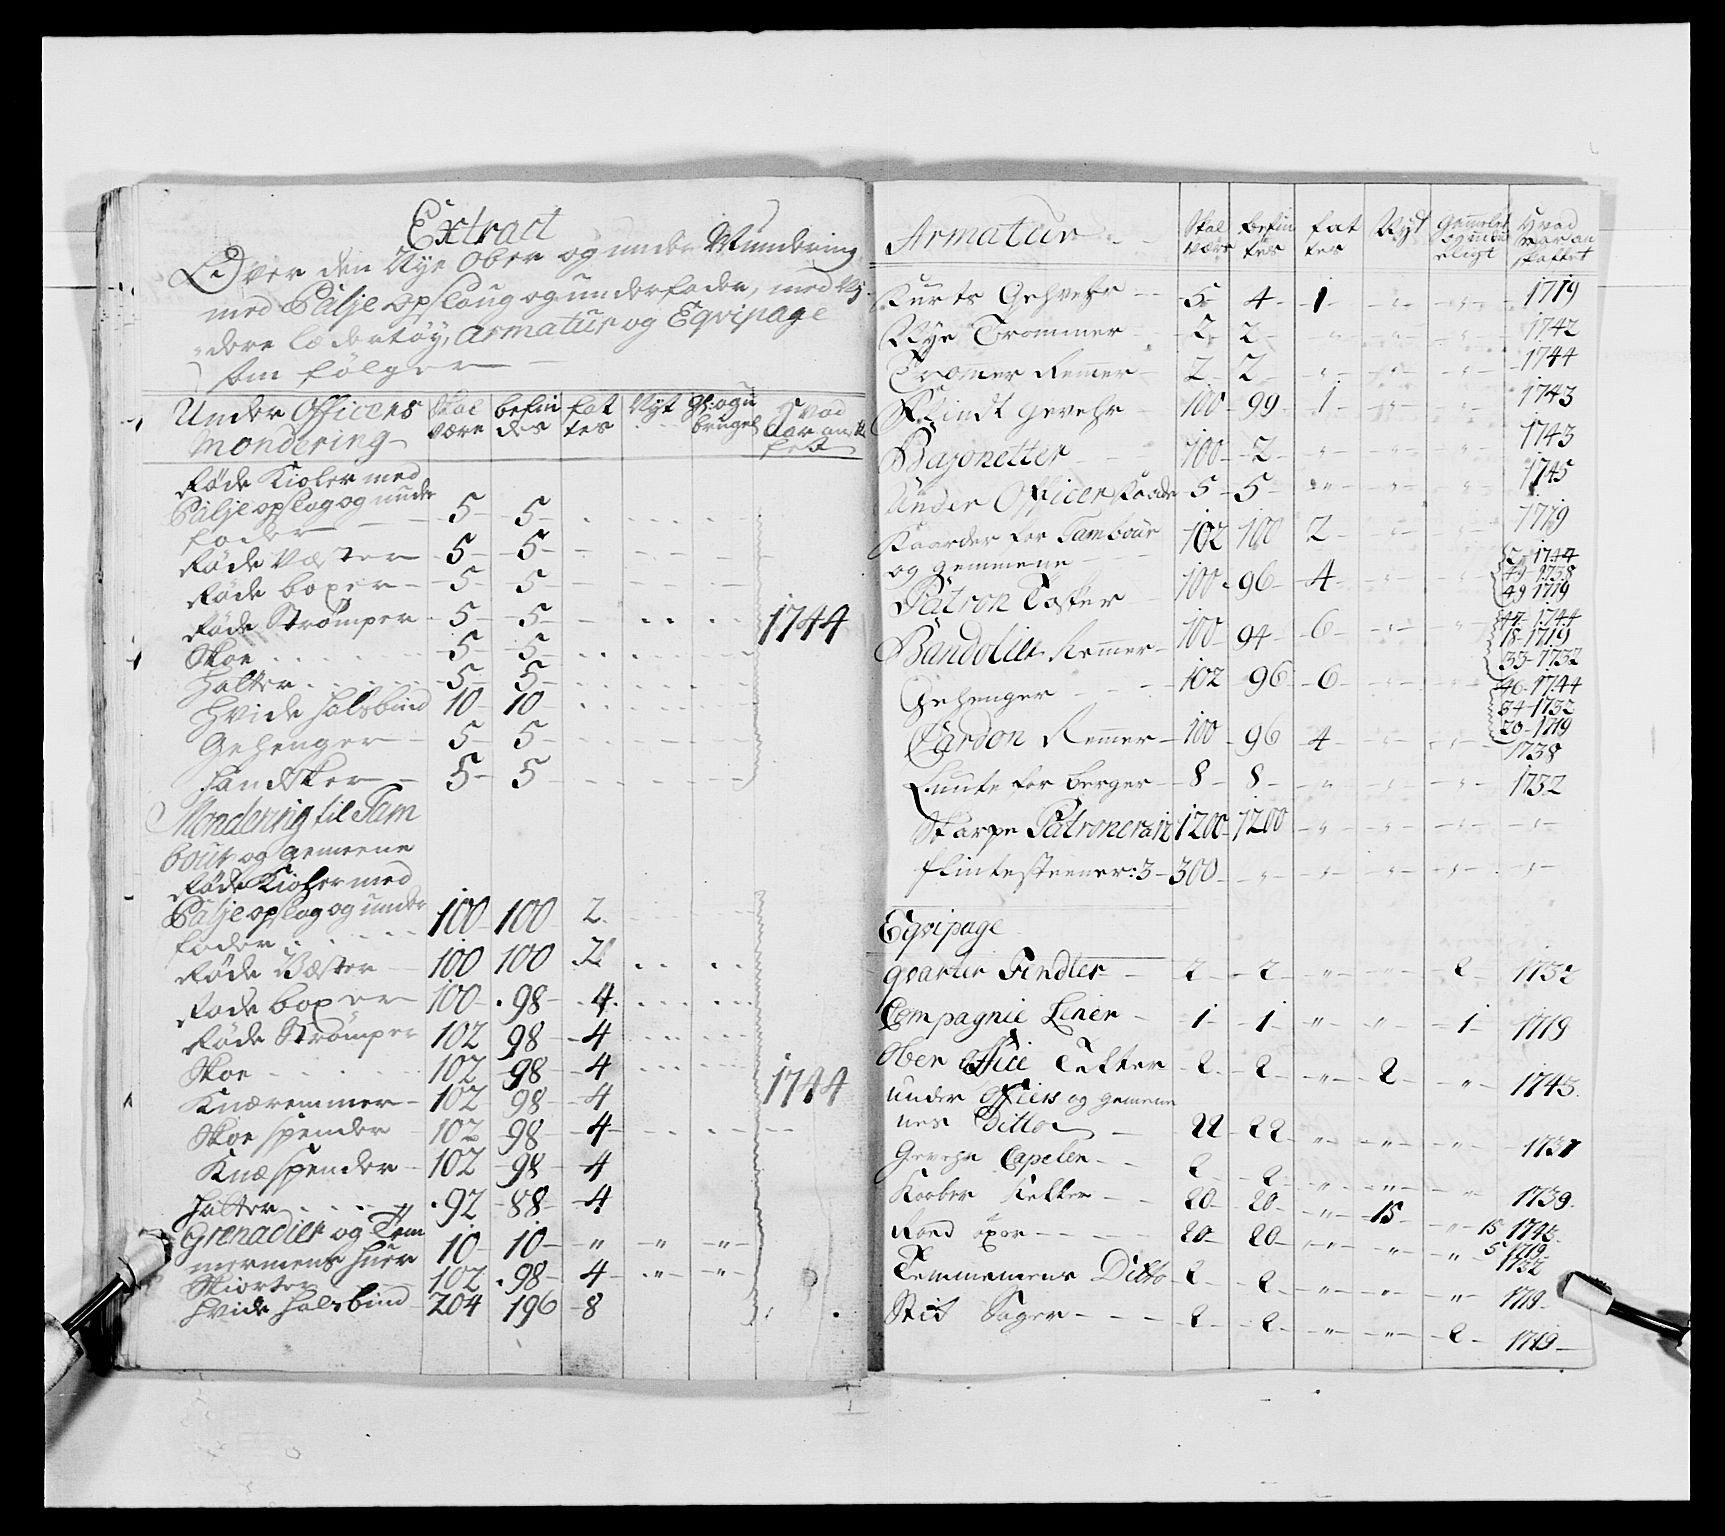 Extract
Over den Nye Ober og under Mundering
med Palje opslaug og underfoder, med vi-
dere lædertøy, Armatür og Eqvipage
som følger
Under Officers Skal være befindes fattes Nyt gl: og u brugel Hvad Aar anskaffet
Mondering
Røde Kioler med
Palje opslag og under 5 5
foder
Røde Væster 5 5
Røde boxer 5 5
Røde Strømper 5 5 1744
Skoe 5 5
Hatter 5 5
Hvide Halsbind 10 10
Gehenger 5 5
Handsker 5 5
Mondering til Tam
bour og gemeene
Røde Kioler med
Palje opslag og under 100 100 2
foder
Røde Væster 100 100 2
Røde boxer 100 98 4
Røde Strømper 102 98 4
Skoe 102 98 4 1744
Knæremmer 102 98 4
Skoe spender 102 98 4
Knæspender 102 98 4
Hatter 92 88 4
Grenadier og Tem
mermens Huer 10 10 " " "
Skiorter 102 98 4 " "
Hvide Halsbind 204 196 8
Armatur Skal være befindes fattes Nyt Gammelt og ubrueligt Hvad Aar anskaffet
Kurts Gehvehr 5 4 1 1719
Nye Trommer 2 2 1742
Tromer Remer 2 2 1744
Flindt gevehr 100 99 1 1743
Bajonetter 100 2 1743
Under Officer Kaarder 5 5 1745
Kaarder for Tambour 102 100 2 1719
og gemmene
Patron Tasker 100 96 4 2-1744
49-1738
49-1719
Bandolier Remer 100 94 6 47-1744
18-1719
33-1732
Gehenger 102 96 6 46-1744
34-1732
20-1719
Cardon Remer 100 96 4 1738
Lunte for berger 8 8 1732
Skarpe Patroner à 12 1200 1200
flintesteener: 3 300
Eqvipage
qvarter Fendler 2 2 " " 2 1732
Compagnie Liner 1 1 " " 1 1719
Ober Offici Telter 2 2 " 2 " 1743
under Officers og gemene
nes Ditto 22 22 " " " 1737
Gevehr Capeler 2 2 " " " 1739
Kaaber Kekker 20 20 " 15 " 15 1742
5 1719
Haand öxer 20 20 " " " 1732
Temmemens Ditto 2 2 " " " 1719
Stik Sager 2 2 " " 2 1719